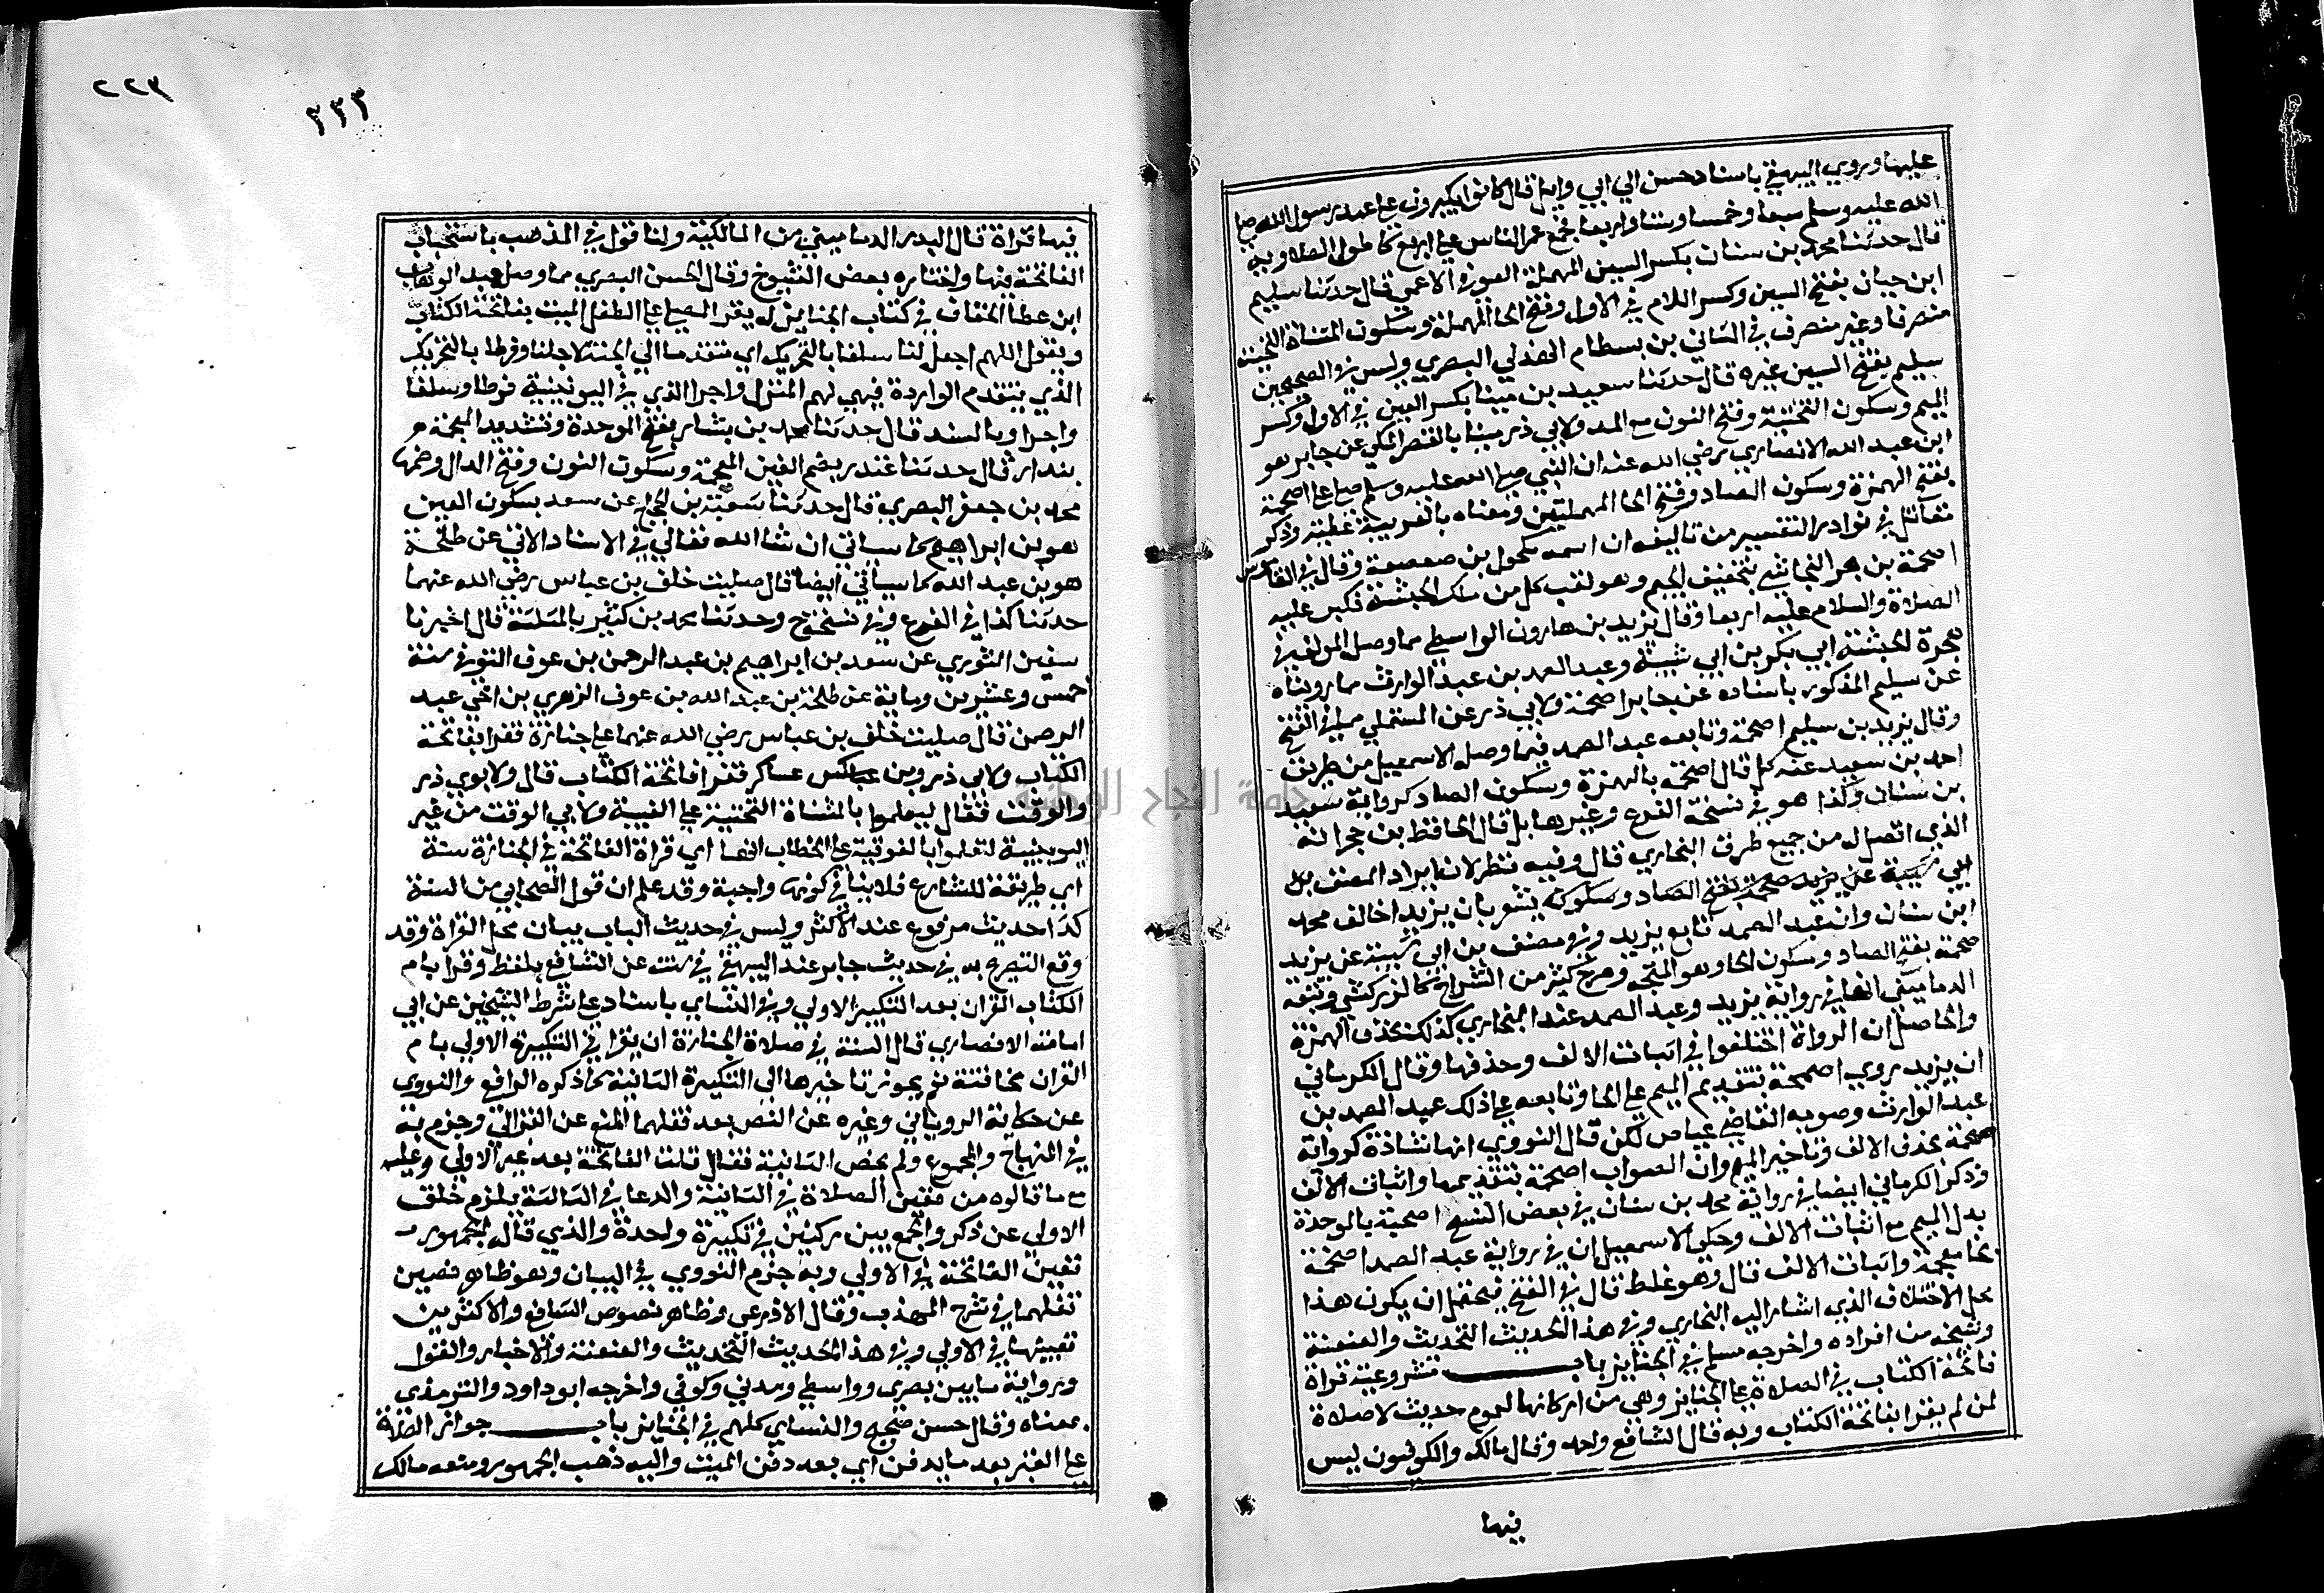 عليها وروي البيهقي باسناد حسن الي ابي وايل قال كانوا يكبرون علي عهد رسول الله صلي
الله عليه وسلم سبعا وخمسا وستا واربعا فجمع عمر الناس علي اربع كاطول الصلاة وبه
قال حدثنا محمد بن سنان بكسر السين المهملة العوقي الاعمي قال حدثنا سليم
ابن حيان بفتح السين وكسر اللام في الاول وفتح الحا المهملة وسكون المثناة التحتية
منصرفا وغير منصرف في الثاني بن بسطام الهذلي البصري وليس في الصحيحين
سليم بفتح السين غيره قال حدثنا سعيد بن مينا بكسر العين في الاول وكسر
الميم وسكون التحتية وفتح النون مع المد ولابي ذر مينا بالقصر المكي عن جابر هو
ابن عبد الله الانصاري رضي الله عنه ان النبي صلي الله عليه وسلم صلي علي اصحمة
بفتح الهمزة وسكون الصاد وفتح الحا المهملتين ومعناه بالعربية عطية وذكر
مقاتل في نوادر التفسير من تاليفه ان اسمه مكحول بن صعصعة وقال في القاموس
اصحمة بن بحر النجاشي بتخفيف الجيم وهو لقب كل من ملك الحبشة فكبر عليه
الصلاة والسلام عليه اربعا وقال يزيد بن هارون الواسطي مما وصل المولف في
هجرة الحبشة ابي بكر بن ابي شيبة وعبد الصمد بن عبد الوارث مما رويناه
عن سليم المذكور باسناده عن جابر اصحمة ولابي ذر عن المستملي مما في الفتح
وقال يزيد بن سليم اصحمة وتابعه عبد الصمد فيما وصل الاسمعيل من طريق
احمد بن سعيد عنه كل قال اصحمة بالهمزة وسكون الصاد كرواية سعيد
بن سنان وكذا هو في نسخة الفرع وغيرها بل قال الحافظ بن حجر انه
الذي اتصل له من جميع طرق البخاري قال وفيه نظر لان ايراد المصنف بل
ابي شيبة عن يزيد صحمة بفتح الصاد وسكون يشعر بان يزيد اخالف محمد
ابن سنان وان عبد الصمد تابع يزيد وفي مصنف بن ابي شيبة عن يزيد
صحمة بفتح الصاد وسكون الحا وهو المتجه وصرح كثير من الشراح كالزركشي وتبعه
الدماميني انها في رواية يزيد وعبد الصمد عند البخاري كذلك بحذف الهمزة
والحاصل ان الرواة اختلفوا في اثبات الالف وحذفها وقال الكرماني
ان يزيد روي اصمحة بتقديم الميم علي الحا وتابعه علي ذلك عبد الصمد بن
عبد الوارث وصوبه القاضي عياض لكن قال النووي انها شاذة كرواية
صحمة بحذف الالف وتاخير الميم وان الصواب اصحمة بتقديمها واثبات الالف
وذكر الكرماني ايضا في رواية محمد بن سنان في بعض النسخ اصحبة بالموحدة
بدل الميم مع اثبات الالف وحكي الاسمعيل ان في رواية عبد الصمد اصخمة
بخا معجمة واثبات الالف قال وهو غلط قال في الفتح فيحتمل ان يكون هذا
محل الاختلاف الذي اشار اليه البخاري وفي هذا الحديث التحديث والعنعنة
وشيخه من افراده واخرجه مسلم في الجنايز باب مشروعية قراة
فاتحة الكتاب في الصلاة علي الجنايز وهي من اركانها لعموم حديث لا صلاة
لمن لم يقرا بفاتحة الكتاب وبه قال الشافعي واحمد وقال مالك والكوفيون ليس
فيها
٢٢٣
٣٣٣
فيها قراة قال البدر الدماميني من المالكية ولنا قول في المذهب باستحباب
الفاتحة فيها واختاره بعض الشيوخ وقال الحسن البصري مما وصل عبد الوهاب
ابن عطا الخفاف في كتاب الجنايز له يقرا المصلي علي الطفل الميت بفاتحة الكتاب
ويقول اللهم اجعل لنا سلفا بالتحريك اي متقدما الي الجنة لاجلنا وفرطا بالتحريك
الذي يتقدم الواردة فيهي لهم المنزل واجرا الذي في اليونينية فرطا وسلفا
واجرا وبالسند قال حدثنا محمد بن بشار بفتح الموحدة وتشديد المعجمة
بندار قال حدثنا غندر بضم الغين المعجمة وسكون النون وفتح الدال وضمها
محمد بن جعفر البصري قال حدثنا شعبة بن الحجاج عن سعد بسكون العين
هو بن ابراهيم كما سياتي ان شا الله تعالي في الاسناد الاتي عن طلحة
هو بن عبد الله كما سياتي ايضا قال صليت خلف بن عباس رضي الله عنهما
حدثنا كذا في الفرع وفي نسخة ح وحدثنا محمد بن كثير بالمثلثة قال اخبرنا
سفين الثوري عن سعد بن ابراهيم بن عبد الرحمن بن عوف المتوفي سنة
خمس وعشرين وماية عن طلحة بن عبد الله بن عوف الزهري بن اخي عبد
الرحمن قال صليت خلف بن عباس رضي الله عنهما علي جنازة فقرا بفاتحة
الكتاب ولابي ذر وبن عساكر فقرا فاتحة الكتاب قال ولابوي ذر
والوقت فقال ليعلموا بالمثناة التحتية علي الغيبة ولابي الوقت من غير
اليونينية لتعلموا بالفوقية علي الخطاب انها اي قراة الفاتحة في الجنازة سنة
اي طريقة للشارع فلا ينافي كونها واجبة وقد علم ان قول الصحابي من السنة
كذا حديث مرفوع عند الاكثر وليس في حديث الباب بيان محل القراة وقد
وقع التصريح به في حديث جابر عند البيهقي في سننه عن الشافعي بلفظ وقرا بام
الكتاب القران بعد التكبير الاولي وفي النساي باسناد علي شرط الشيخين عن ابي
امامة الانصاري قال السنة في صلاة الجنازة ان يقرا في التكبيرة الاولي بام
القران مخافتة نعم يجوز تاخيرها الي التكبيرة الثانية كما ذكره الرافعي والنووي
عن حكاية الروياني وغيره عن النص بعد نقلهما المنع عن الغزالي وجزم به
في المنهاج والمجموع ولم يخص الثانية فقال قلت الفاتحة بعد غير الاولي وعليه
مع ما قالوه من تعين الصلاة في الثانية والدعا في الثالثة يلزم خلو
الاولي عن ذكر والجمع بين ركنين في تكبيرة واحدة والذي قاله الجمهور
تعين الفاتحة في الاولي وبه جزم النووي في التبيان وهو ظاهر نصين
نقلهما في شرح المهذب وقال الاذرعي وظاهر نصوص الشافعي والاكثرين
تعيينها في الاولي وفي هذا الحديث التحديث والعنعنة والاخبار والقول
ورواية ما بين بصري وواسطي ومدني وكوفي واخرجه ابو داود والترمذي
بمعناه وقال حسن صحيح والنساي كلهم في الجنايز باب جواز الصلاة
علي القبر بعد ما يدفن اي بعد دفن الميت واليه ذهب الجمهور ومنعه مالك
جامعة النجاح الوطنية